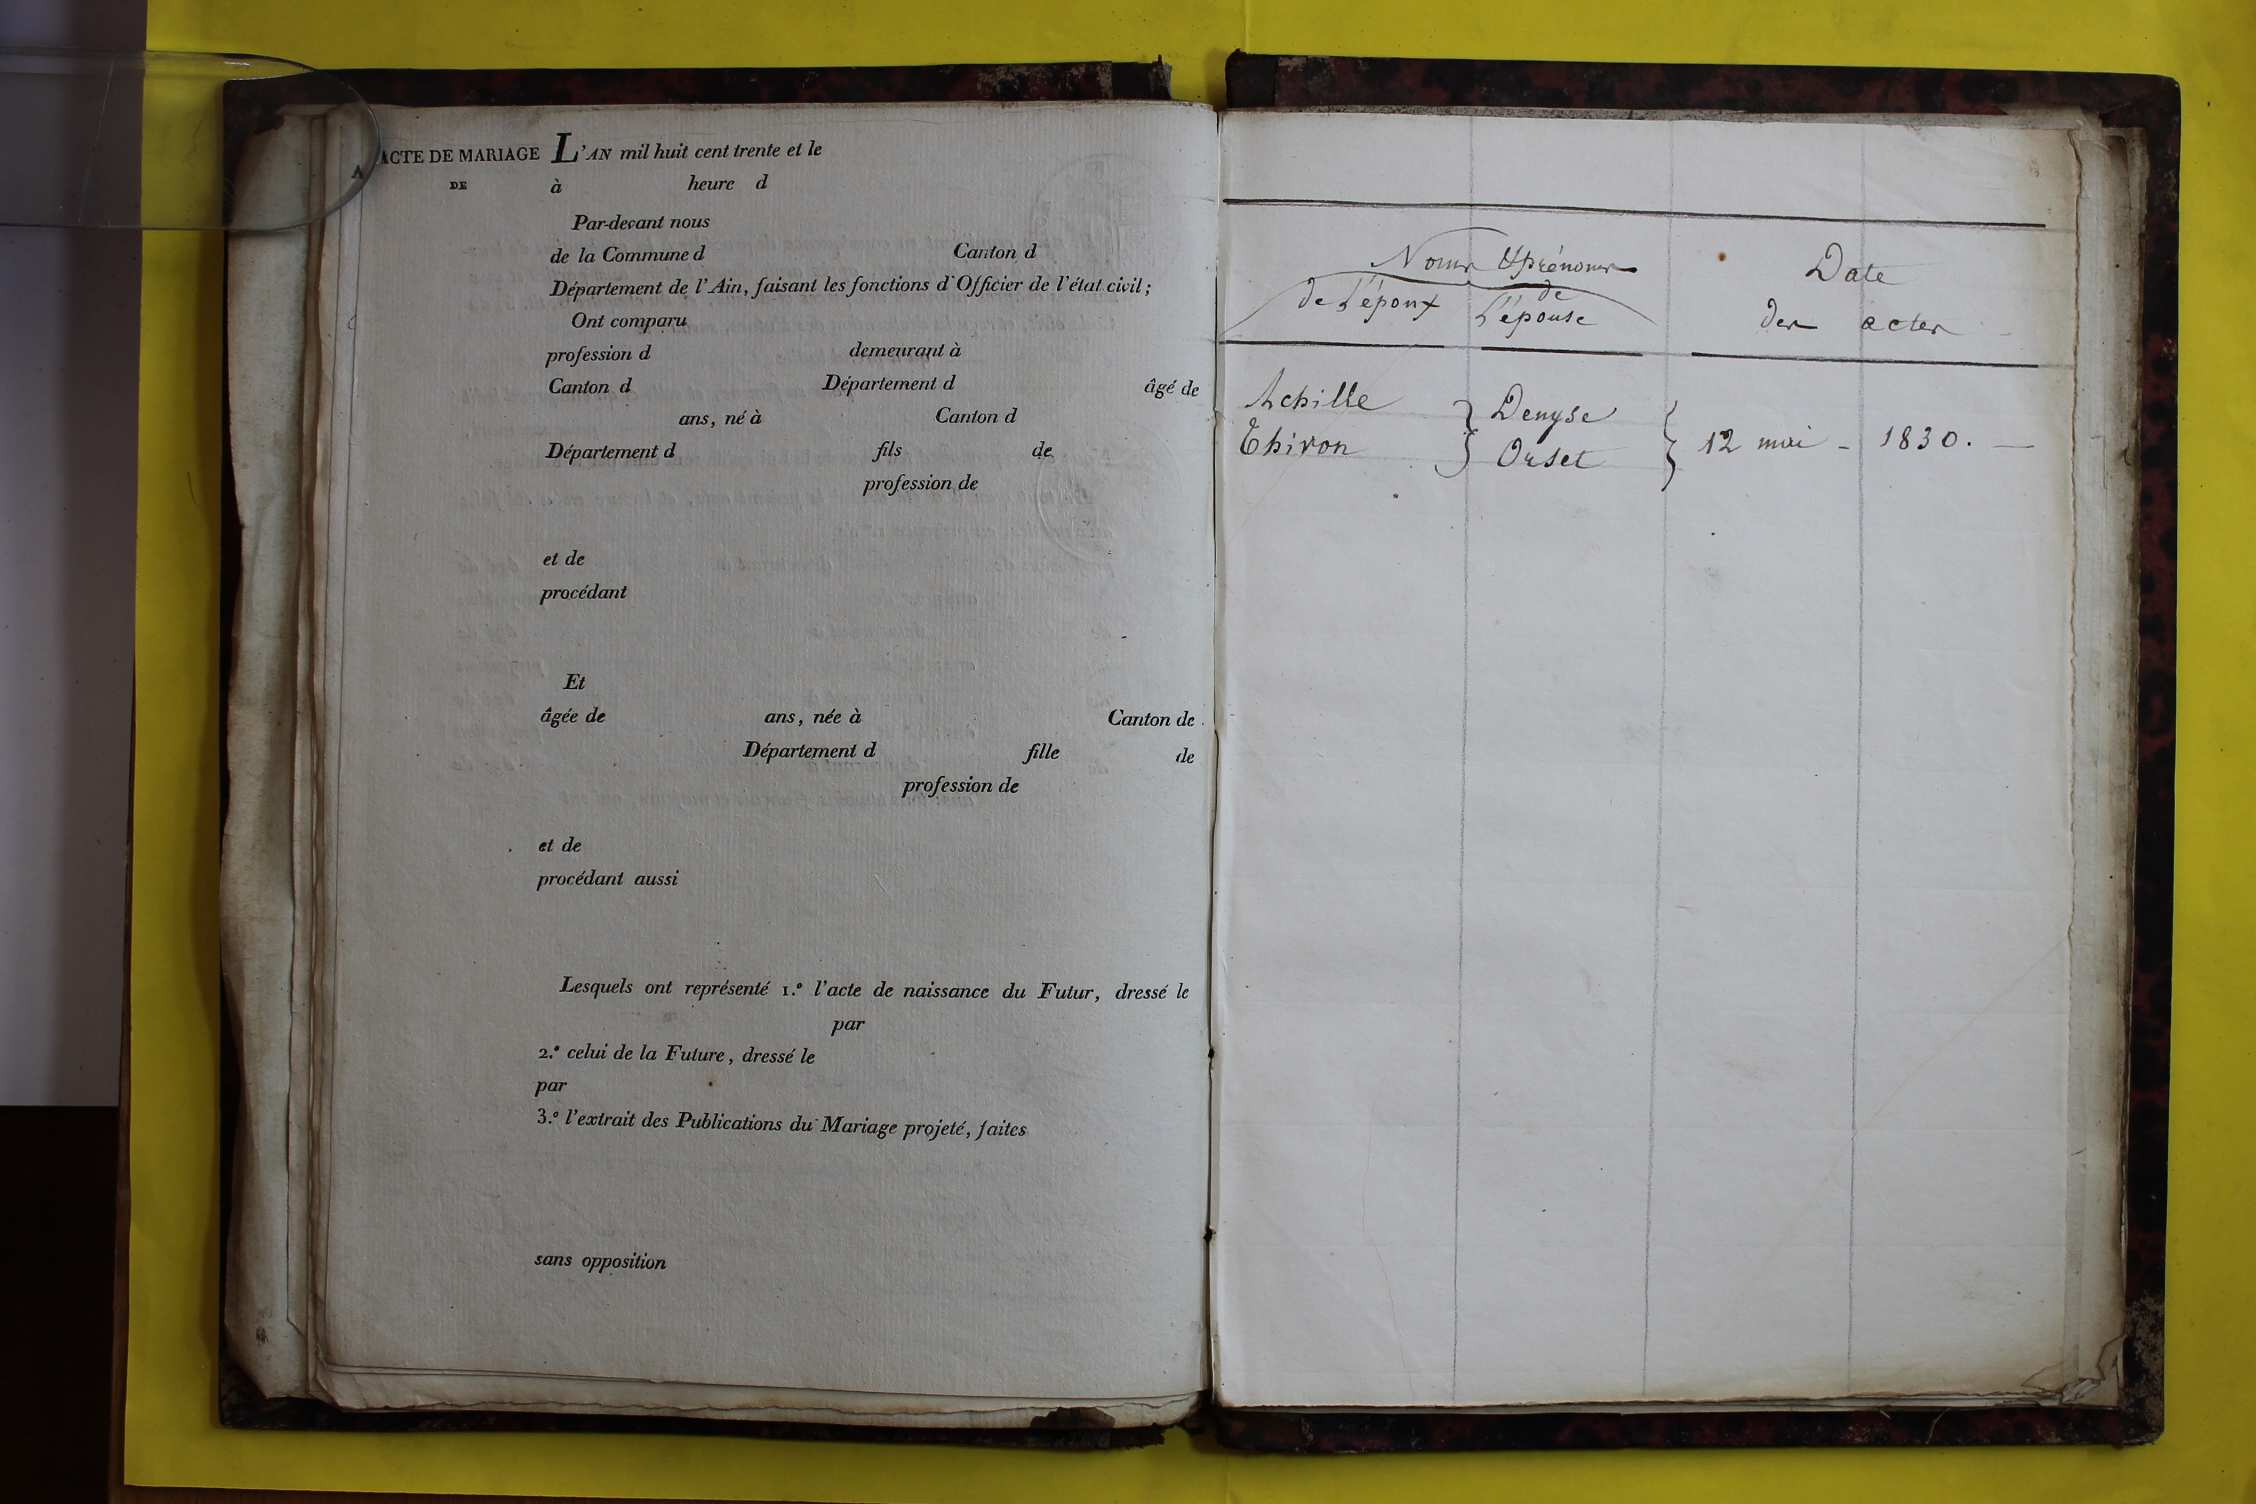 ACTE DE MARIAGE L'AN mil huit cent trente et le
DE à heure d
Par-devant nous
de la Commune d Canton d
Département de l'Ain, faisant les fonctions d'Officier de l'état civil;
Ont comparu
profession d demeurant à
Canton d Département d âgé de
ans, né à Canton d
Département d fils de
profession de
et de
procédant
Et
âgée de ans, née à Canton de
Département d fille de
profession de
et de
procédant aussi
Lesquels ont représenté 1.º l'acte de naissance du Futur, dressé le
par
2.º celui de la Future, dressé le
par
3.º l'extrait des Publications du Mariage projeté, faites
sans opposition
Noms & prénoms
de l'époux de l'épouse
Date
des actes
Achille Thivon
Denyse Orset
12 mai - 1830.